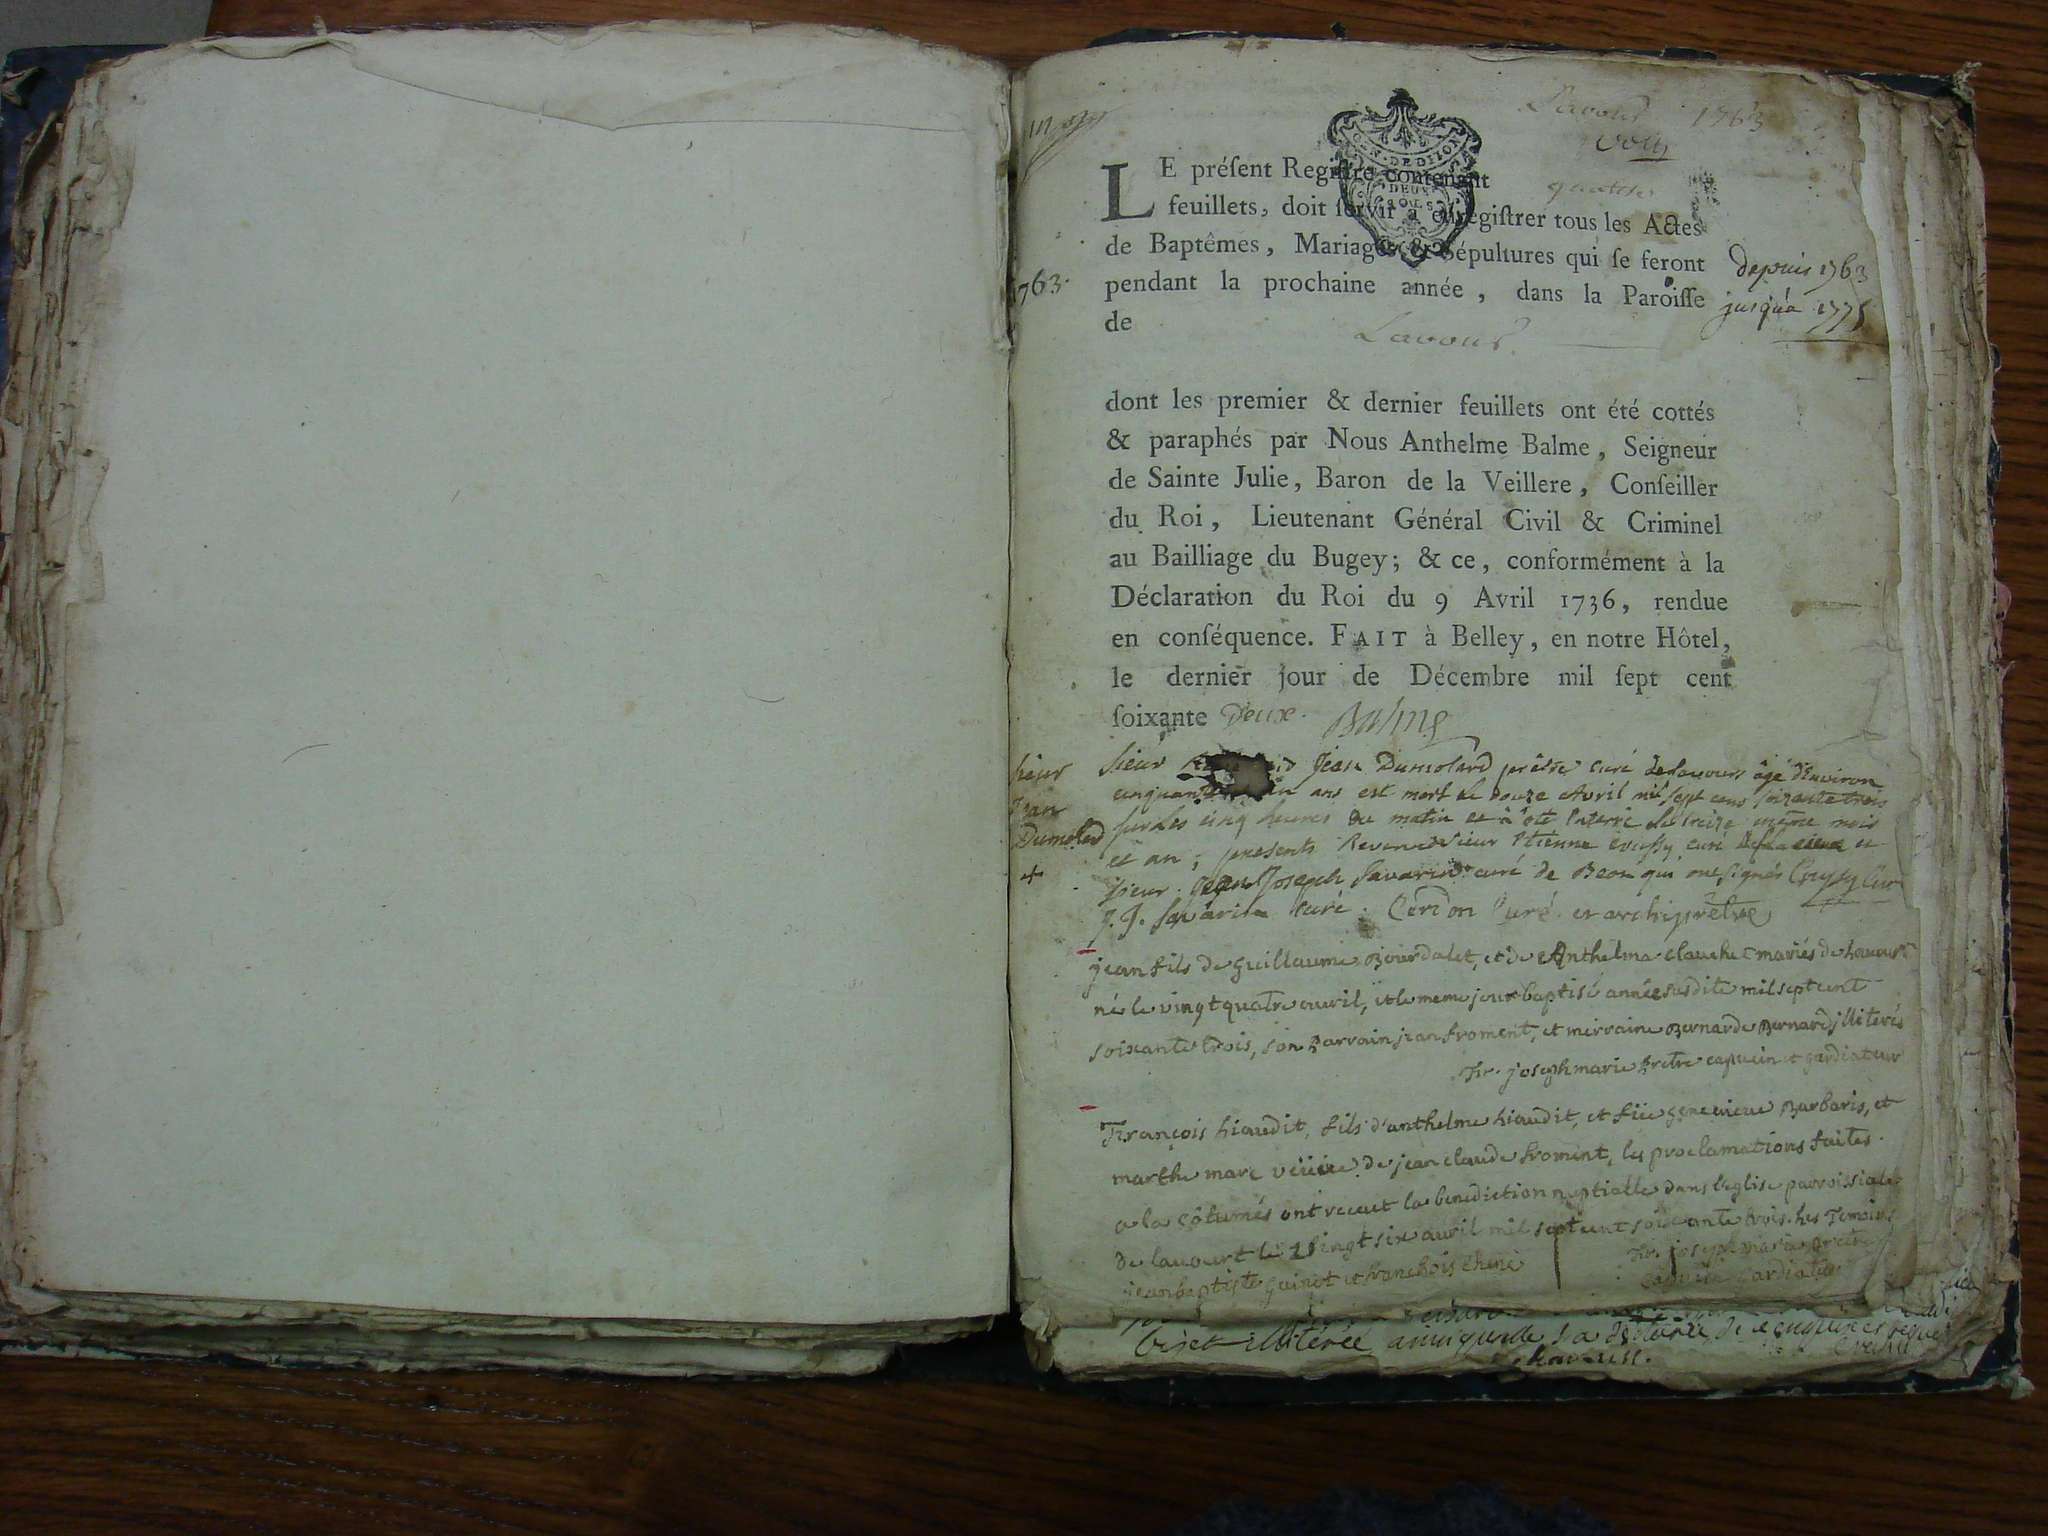 Lavour 1763
GEN. DE DIJON
DEUX
SOLS
LE préſent Regiſtre contenant quatre
feuillets, doit ſervir à enregiſtrer tous les Actes
de Baptêmes, Mariages & Sépultures qui ſe feront
depuis 1763
1763.
pendant la prochaine année, dans la Paroiſſe
jusqu'a 1775
de Lavour.
dont les premier & dernier feuillets ont été cottés
& paraphés par Nous Anthelme Balme, Seigneur
de Sainte Julie, Baron de la Veillere, Conſeiller
du Roi, Lieutenant Général Civil & Criminel
au Bailliage du Bugey; & ce, conformément à la
Déclaration du Roi du 9 Avril 1736, rendue
en conſéquence. FAIT à Belley, en notre Hôtel,
le dernier jour de Décembre mil ſept cent
ſoixante Deux. Balme
sieur
Jean
Dumolard
+
Sieur Jean Dumolard prêtre curé de Lavours âgé d'Environ
cinquante ans est mort le douze Avril mil sept cens soixante trois
sur les cinq heures du matin et à été Enterré le treize même mois
et an, presents Reverend Sieur Etienne curé de et
sieur Jean Joseph Savarin curé de Beon qui ont signés
J. J. Savarin curé. Cerdon Curé et archiprêtre
jean fils de guillaume Bourdalet, et de Anthelma clauchet mariés de Lavour
né le vingt quatre avril, et le meme jour baptisé année susdite mil sept cent
soixante trois, son parrain jean froment, et merraine Bernarde Bernard illiterés
Fr. joseph marie prêtre capucin et gardiateur
François hiaudit, fils d'anthelme hiaudit, et füe genevieve Barbaris, et
marthe marc veüve de jean claude froment, les proclamations faites
a la cotumés ont receut la benediction nuptialle dans leglise parroissiale
de lavourt le vingt six avril mil sept cent soixante trois. les Temoins
jean baptiste guinet et franchois chene Fr. joseph marie prêtre
capucin gardiateur
illiterée